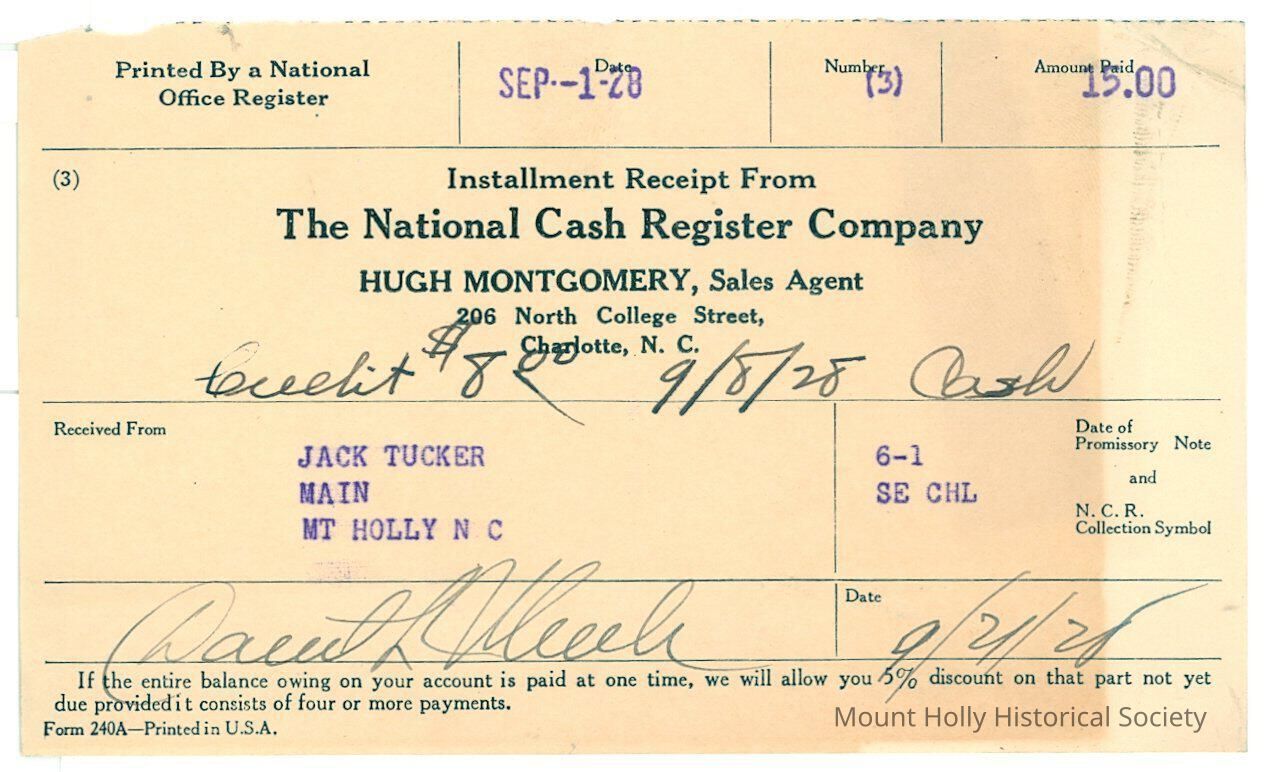 Printed By a National
Office Register
Date
SEP.-1-28
Number
(3)
Amount Paid
15.00
(3)
Installment Receipt From
The National Cash Register Company
HUGH MONTGOMERY, Sales Agent
206 North College Street,
Charlotte, N. C.
Credit $8 00 9/8/28 Cash
Received From
JACK TUCKER
MAIN
MT HOLLY N C
6-1
SE CHL
Date of
Promissory Note
and
N. C. R.
Collection Symbol
Date
9/21/28
If the entire balance owing on your account is paid at one time, we will allow you 5% discount on that part not yet
due provided it consists of four or more payments.
Form 240A—Printed in U.S.A.
Mount Holly Historical Society